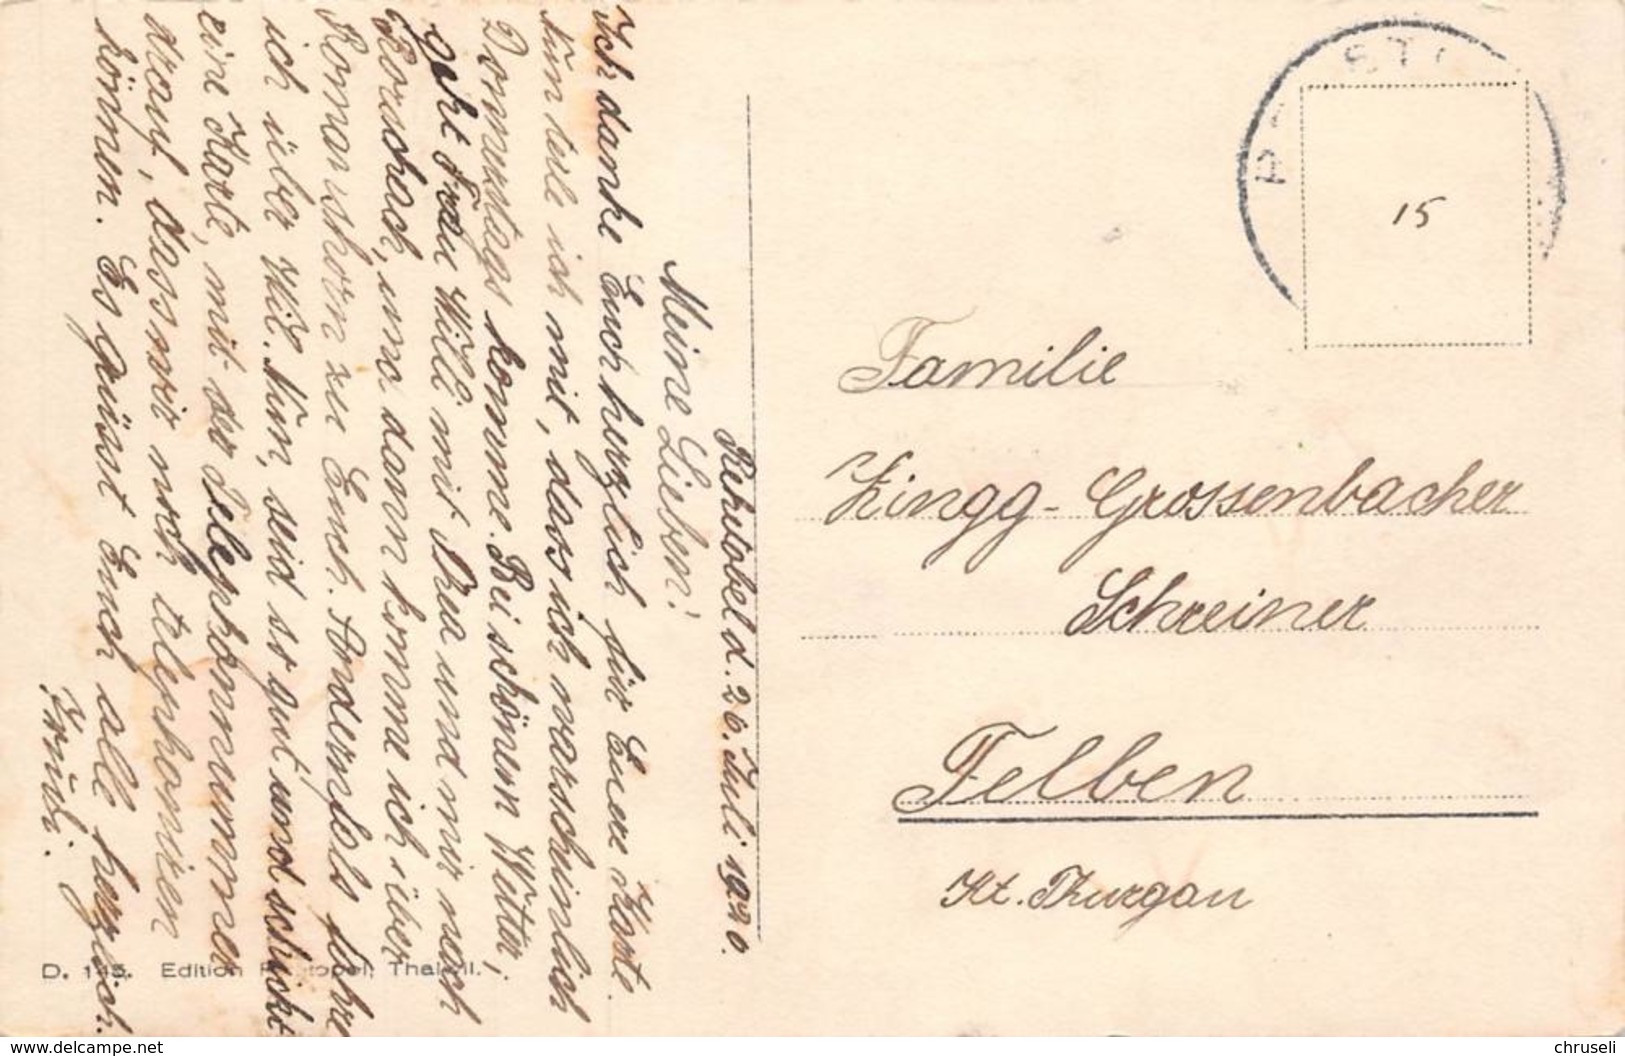 Rehetobel d. 26. Juli 1920.
Meine Lieben!
Ich danke Euch herzlich für Eure Karte.
Nun teile ich mit, dass ich warscheinlich
Donnerstags komme. Bei schönem Wetter,
geht Frau Willi mit Bea und mir nach
Rorschach, und dann komme ich über
Romanshorn zu Euch. Andernfals fahre
ich über Wil. Nun, seid so gut und schickt
eine Karte, mit der Telephonnummer
drauf, dass wir noch telephonieren
können. Es grüsst Euch alle herzlich.
Trudi.
Familie
Zingg-Grossenbacher
Schreiner
Felben
Kt. Thurgau
15
D. 145. Edition Thalwil.
delcampe.net
chruseli